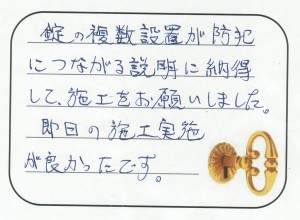 錠の複数設置が防犯
につながる説明に納得
して、施工をお願いしました。
即日の施工実施
が良かったです。